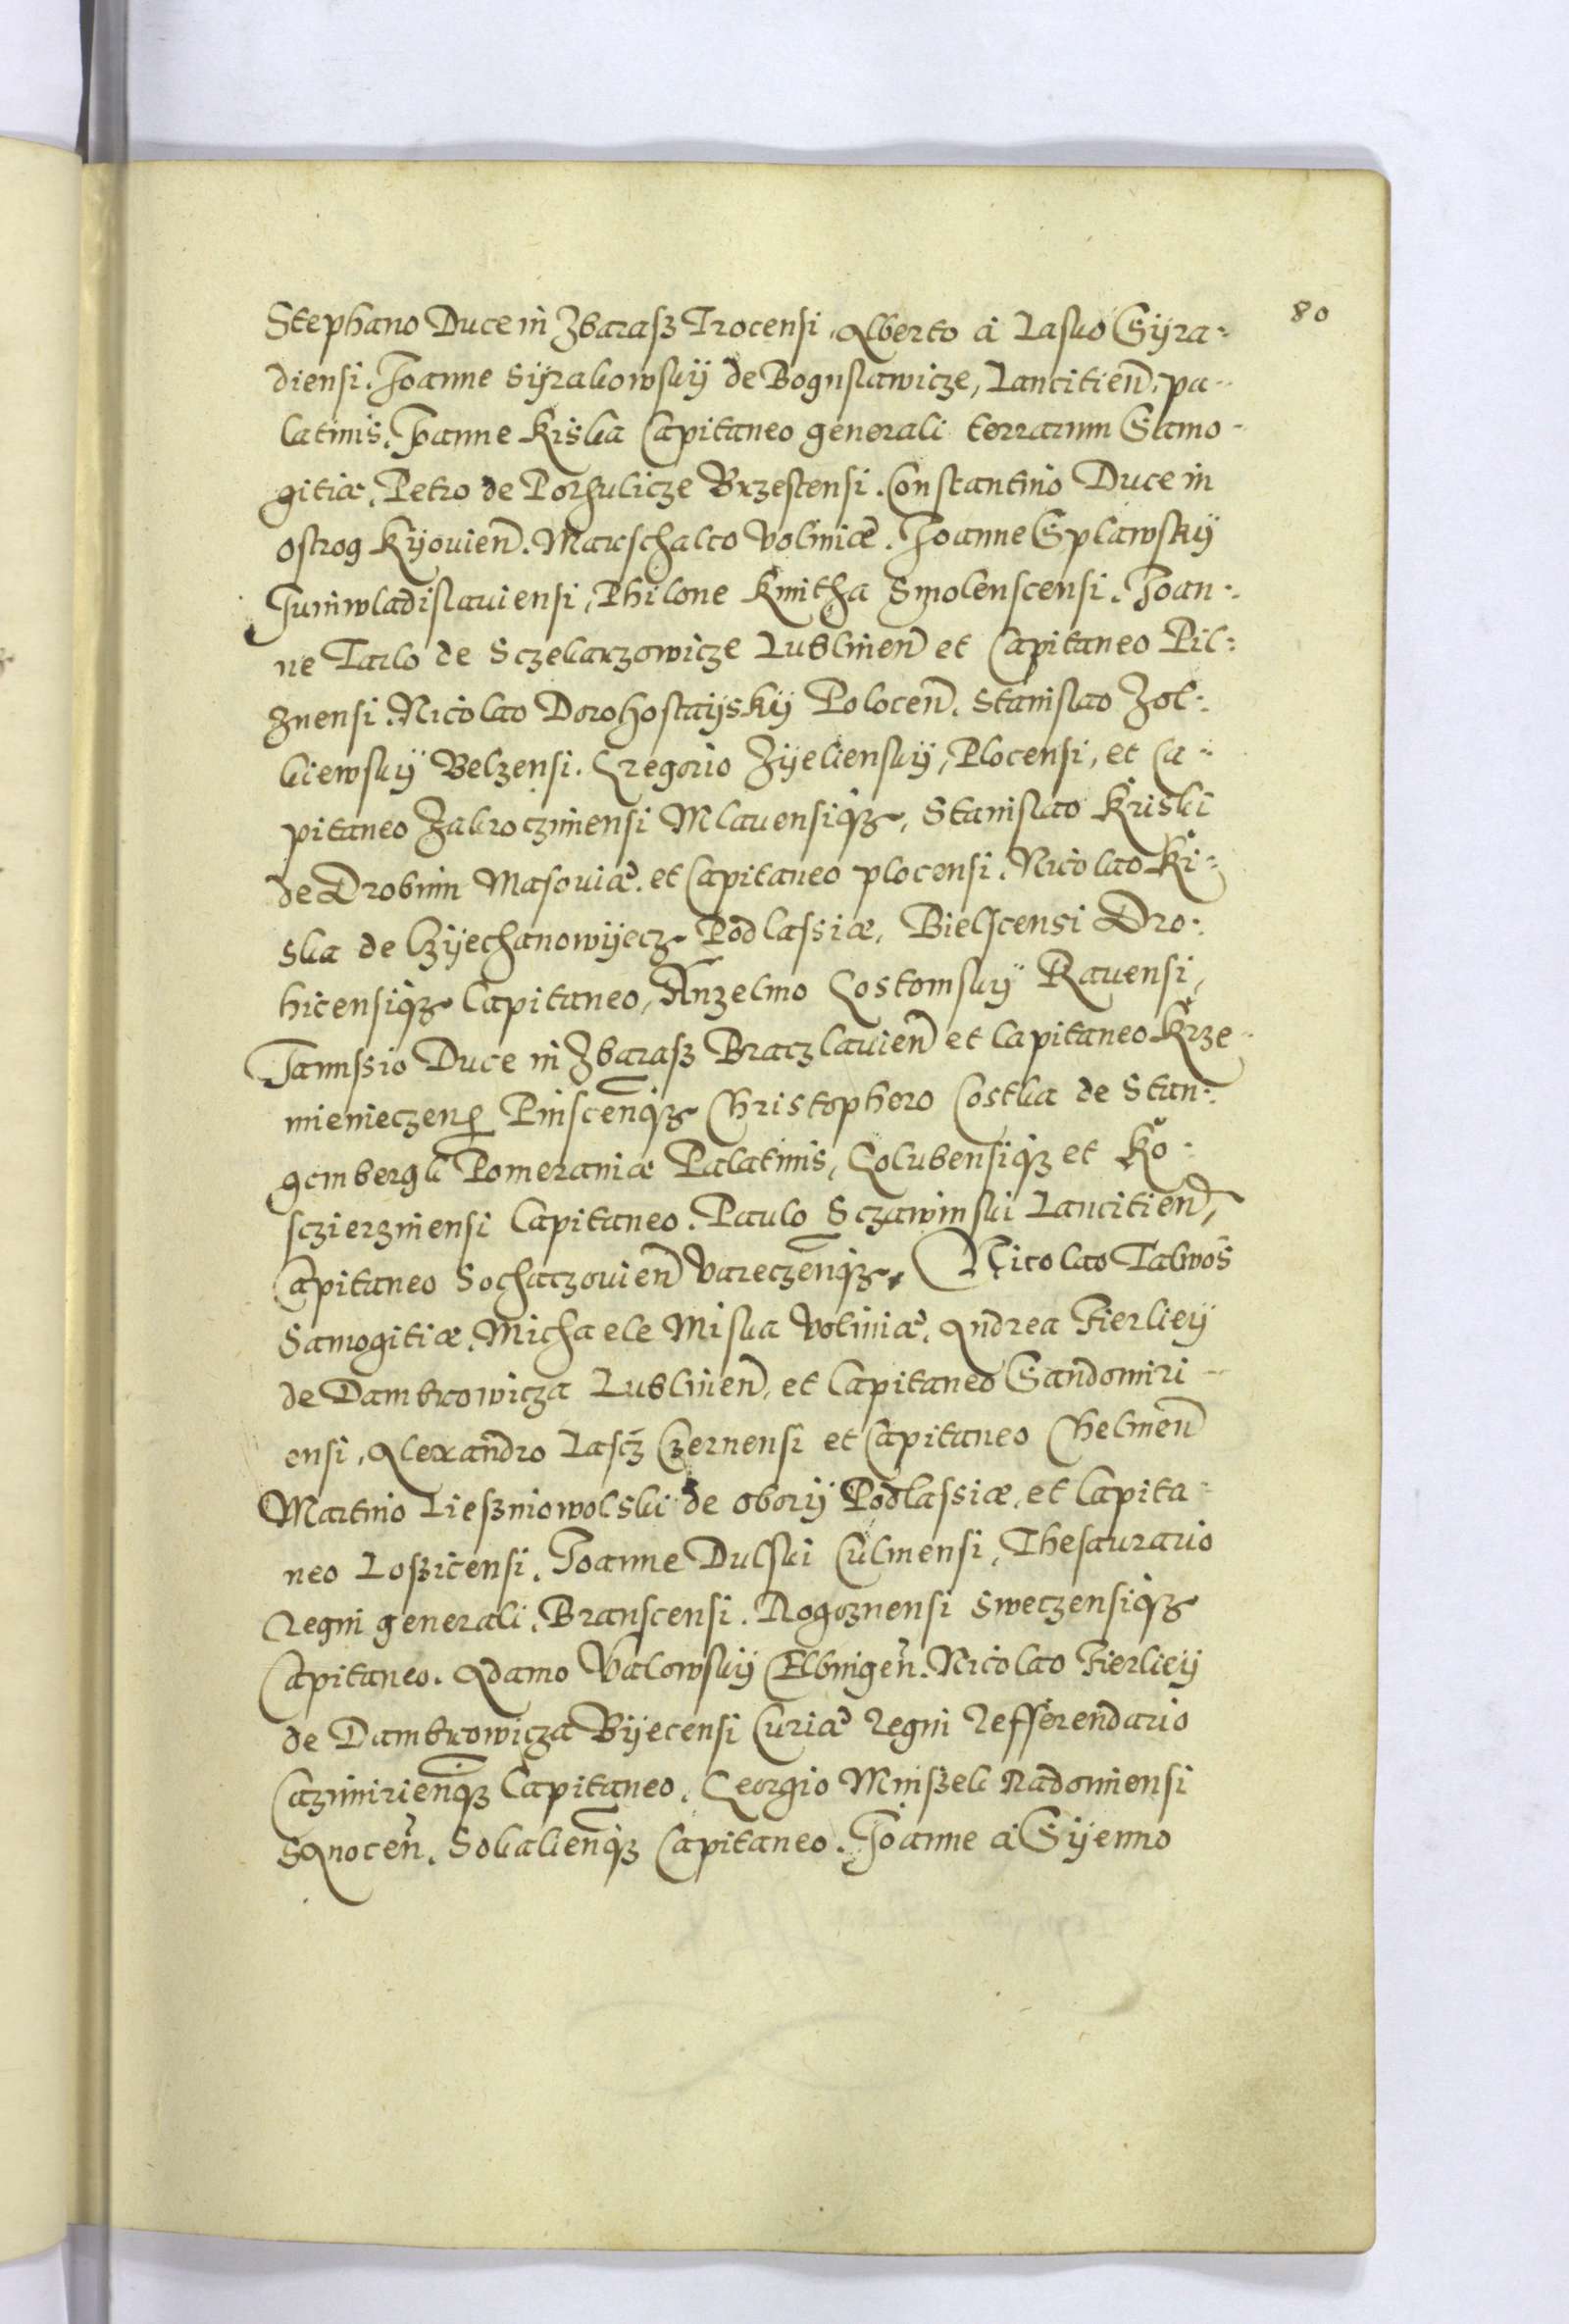 80
Stephano Duce in Zbarasz Trocensi. Alberto à Lasko Syra-
diensi. Joanne Syrakowsky de Boguslawicze, Lancitien̄. pa-
latinis. Joanne Kiska Capitaneo generali terrarum Samo-
gitiæ. Petro de Porzulicze Brzestensi. Constantino Duce in
Ostrog Kÿouien̄. Marschalco Voliniæ. Joanne Splawskÿ
Juniwladislauiensi, Philone Kmitha Smolenscensi. Joan-
ne Tarlo de Sczekarzowicze Lublinen̄ et Capitaneo Pil-
znensi. Nicolao Dorohostaÿskÿ Polocen̄. Stanislao Zol-
kiewskÿ Belzensi. Gregorio Zÿelienskÿ, Plocensi, et Ca-
pitaneo Zakroczimensi Mlauensiqz, Stanislao Kriski
de Drobnin Masouiæ. et Capitaneo plocensi. Nicolao Ki-
ska de Czÿechanowÿecz Podlassiæ, Bielscensi Dro-
hicensiqz Capitaneo, Anzelmo Gostomskÿ Rauensi,
Janussio Duce in Zbarasz Braczlauien̄ et Capitaneo Krze-
mienieczen̄ Pinscen̄qz Christophoro Costka de Stan-
gembergk Pomeraniæ Palatinis, Golubensiqz et Ko-
sczierzinensi Capitaneo. Paulo Sczawinski Lancitien̄,
Capitaneo Sochaczouien̄ Vareczen̄qz. Nicolao Talwos
Samogitiæ. Michaele Miska Voliniæ. Andrea Fierliey
de Dambrowicza Lublinen̄, et Capitaneo Sandomiri-
ensi, Alexandro Lascz Czernensi et Capitaneo Chelmen̄
Martino Liesznowolski de Oborÿ Podlassiæ, et Capita-
neo Loszicensi. Joanne Dulski Culmensi, Thesaurario
Regni generali. Branscensi. Rogoznensi Sweczensiqz
Capitaneo. Adamo Valowskÿ Elbingen̄. Nicolao Fierliey
de Dambrowicza Bÿecensi Curiæ Regni Refferendario
Cazimirien̄qz Capitaneo. Georgio Mniszek Radomensi
Sanocen̄. Sokalien̄qz Capitaneo. Joanne à Sÿenno